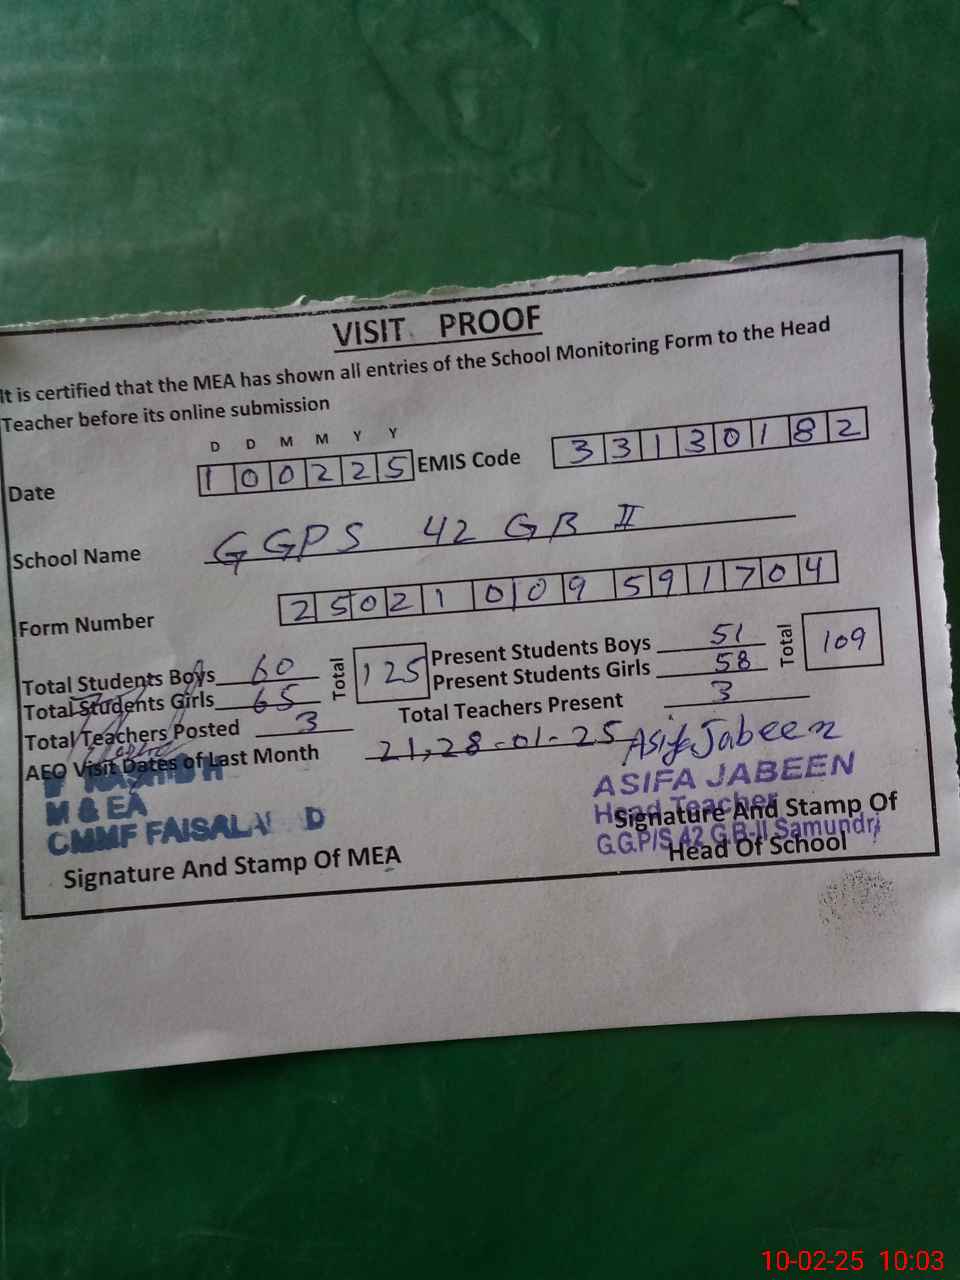 VISIT PROOF
It is certified that the MEA has shown all entries of the School Monitoring Form to the Head
Teacher before its online submission
D D M M Y Y
Date 1 0 0 2 2 5 EMIS Code 3 3 1 3 0 1 8 2
School Name GGPS 42 GB II
Form Number 2 5 0 2 1 0 0 9 5 9 1 7 0 4
Total Students Boys 60 Total 125 Present Students Boys 51 Total 109
Total Students Girls 65 Present Students Girls 58
Total Teachers Posted 3 Total Teachers Present 3
AEO Visit Dates of Last Month 21,28-01-25 Asifa Jabeen
M & EA
CMMF
ASIFA JABEEN
Head Teacher
G.G.P/S 42 G.B-II Samundri
Signature And Stamp Of MEA
Signature And Stamp Of
Head Of School
10-02-25 10:03